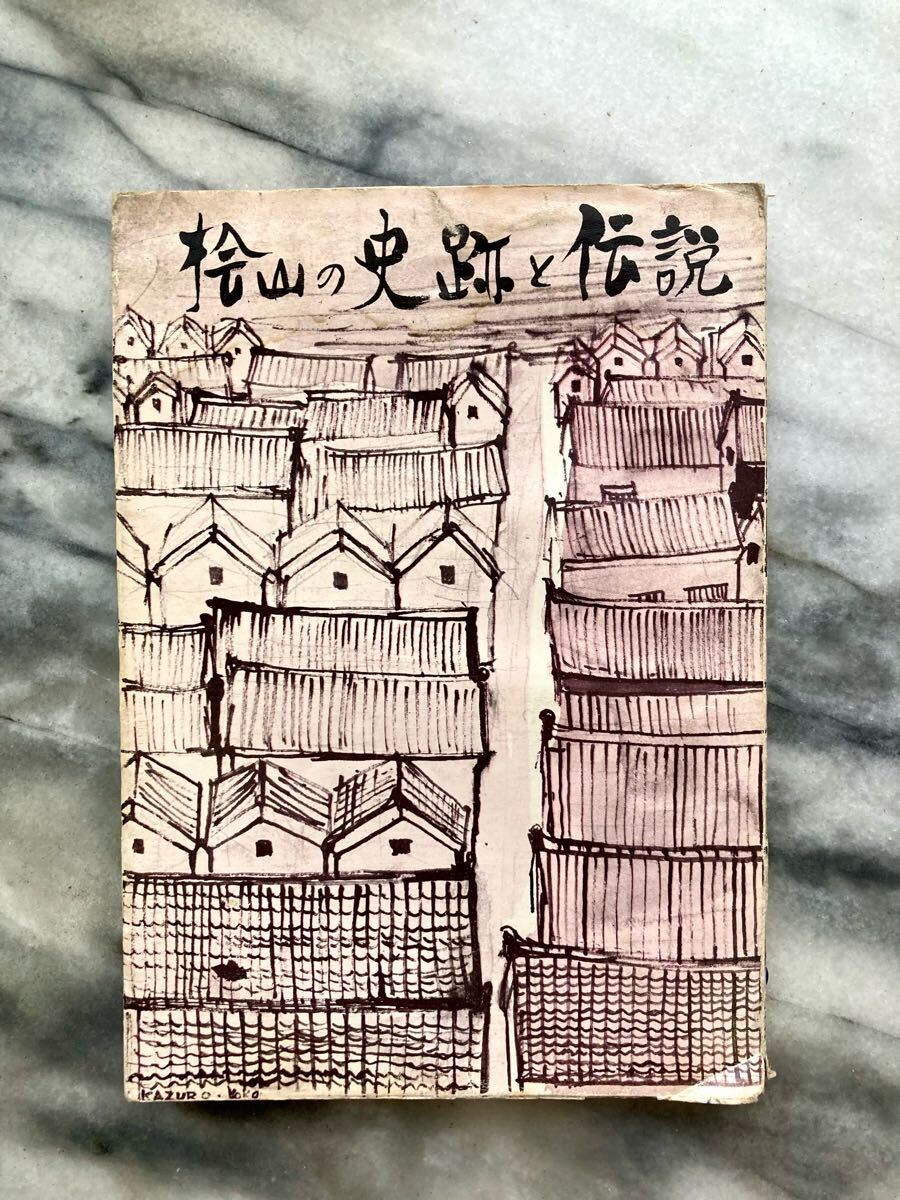 桧山の史跡と伝説
KAZURO・YOKO